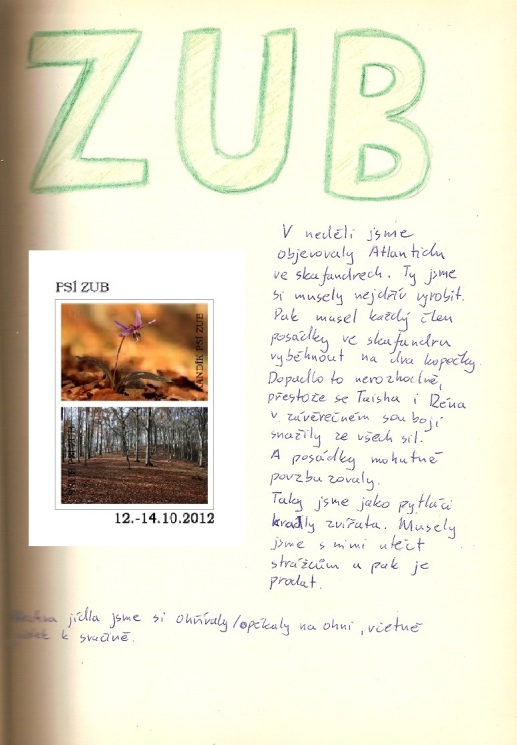 ZUB
V neděli jsme
objevovaly Atlantidu
ve skafandrech. Ty jsme
si musely nejdřív vyrobit.
Pak musel každý člen
posádky ve skafandru
vyběhnout na dva kopečky.
Dopadlo to nerozhodně,
přestože se Taisha i Réna
v závěrečném souboji
snažily ze všech sil.
A posádky mohutně
povzbuzovaly.
Taky jsme jako pytláci
kradly zvířata. Musely
jsme s nimi utéct
strážcům a pak je
prodat.
PSÍ ZUB
KANDÍK PSÍ ZUB
12.-14.10.2012
jídla jsme si ohřívaly/opékaly na ohni, včetně
k svačině.